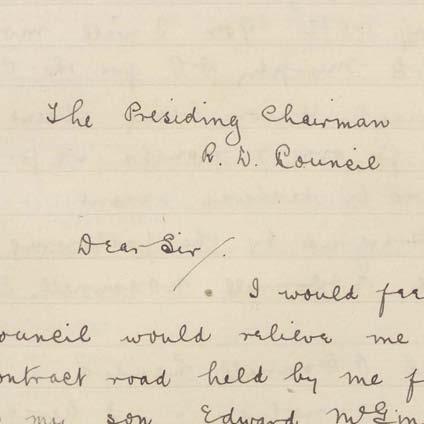 The Presiding Chairman
R. D. Council
Dear Sir/.
I would fee
ouncil would relieve me
ontract road held by me f
my son Edward McGin